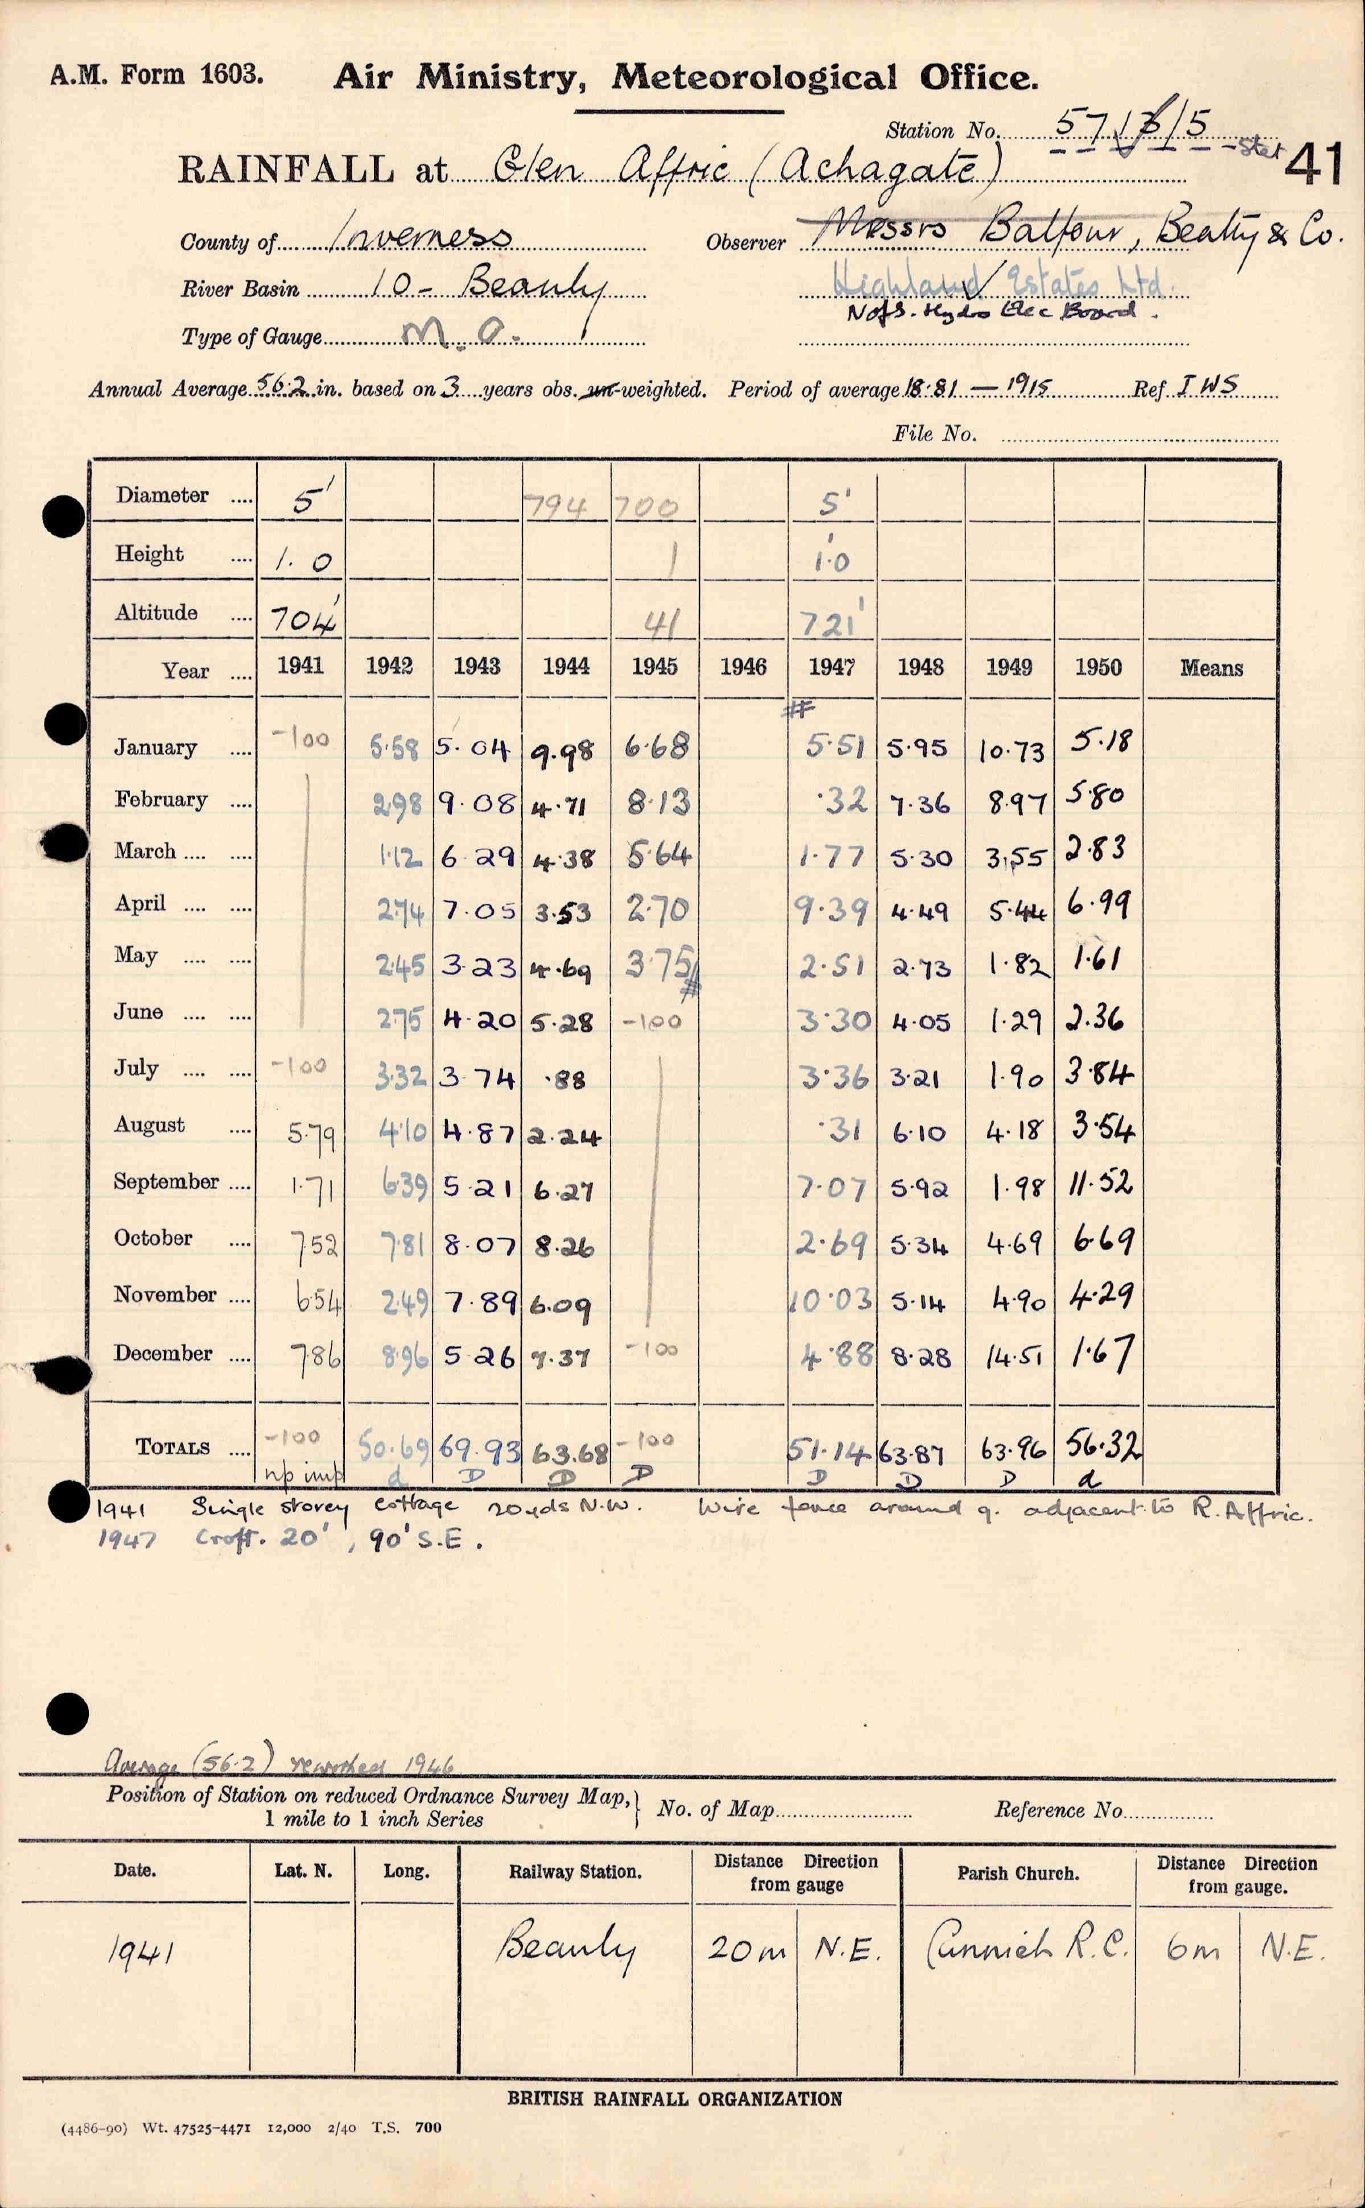 A.M. Form 1603. Air Ministry, Meteorological Office.
Station No. 57/3/5 Stet 41
RAINFALL at Glen Affric (Achagate)
County of Inverness Observer Messrs Balfour, Beatty & Co.
River Basin 10 - Beauly Highland Estates Ltd.
N of S. Hydro Elec Board.
Type of Gauge M.O.
Annual Average 56.2 in. based on 3 years obs. un-weighted. Period of average 1881 — 1915 Ref IWS
File No.
Diameter .... 5' 794 700 5'
Height .... 1.0 1 1.0
Altitude .... 704' 41 721'
Year .... 1941 1942 1943 1944 1945 1946 1947 1948 1949 1950 Means
#
January .... -100 5.58 5.04 9.98 6.68 5.51 5.95 10.73 5.18
February .... 2.98 9.08 4.71 8.13 .32 7.36 8.97 5.80
March .... .... 1.12 6.29 4.38 5.64 1.77 5.30 3.55 2.83
April .... .... 2.74 7.05 3.53 2.70 9.39 4.49 5.44 6.99
May .... .... 2.45 3.23 4.69 3.75 # 2.51 2.73 1.82 1.61
June .... .... 2.75 4.20 5.28 -100 3.30 4.05 1.29 2.36
July .... .... -100 3.32 3.74 .88 3.36 3.21 1.90 3.84
August .... 5.79 4.10 4.87 2.24 .31 6.10 4.18 3.54
September .... 1.71 6.39 5.21 6.27 7.07 5.92 1.98 11.52
October .... 7.52 7.81 8.07 8.26 2.69 5.34 4.69 6.69
November .... 6.54 2.49 7.89 6.09 10.03 5.14 4.90 4.29
December .... 7.86 8.96 5.26 7.37 -100 4.88 8.28 14.51 1.67
TOTALS .... -100 50.69 69.93 63.68 -100 51.14 63.87 63.96 56.32
np imp d D D D D D D d
1941 Single storey cottage 20 yds N.W. Wire fence around g. adjacent to R. Affric.
1947 Croft. 20', 90' S.E.
Average (56.2) reworked 1946
Position of Station on reduced Ordnance Survey Map, } No. of Map Reference No.
1 mile to 1 inch Series
Date. Lat. N. Long. Railway Station. Distance Direction from gauge Parish Church. Distance Direction from gauge.
1941 Beauly 20m N.E. Cannich R.C. 6m N.E.
BRITISH RAINFALL ORGANIZATION
(4486-90) Wt. 47525-4471 12,000 2/40 T.S. 700